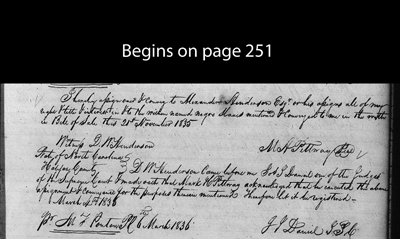 Begins on page 251
I hereby assign over & Convey to Alexander Henderson Esqr or his assigns all of my
right & title & interest in & to the within named negro Isaac mentioned & Conveyed to me in the within
in Bill of Sale This 21st November 1835
Witness D. W. Henderson
M. H. Pettway Seal
State of North Carolina
Halifax County D. W. Henderson Came before me J. J. Daniel one of the Judges
of the Supreme Court & made oath that Mark H. Pettway acknowledged that he executed the above
assignment & Conveyance for the purposes therein mentioned Therefore let it be registered
March 4th 1836
J. J. Daniel J. S. C.
pr. M. F. Ponton P.R. 6 March 1836